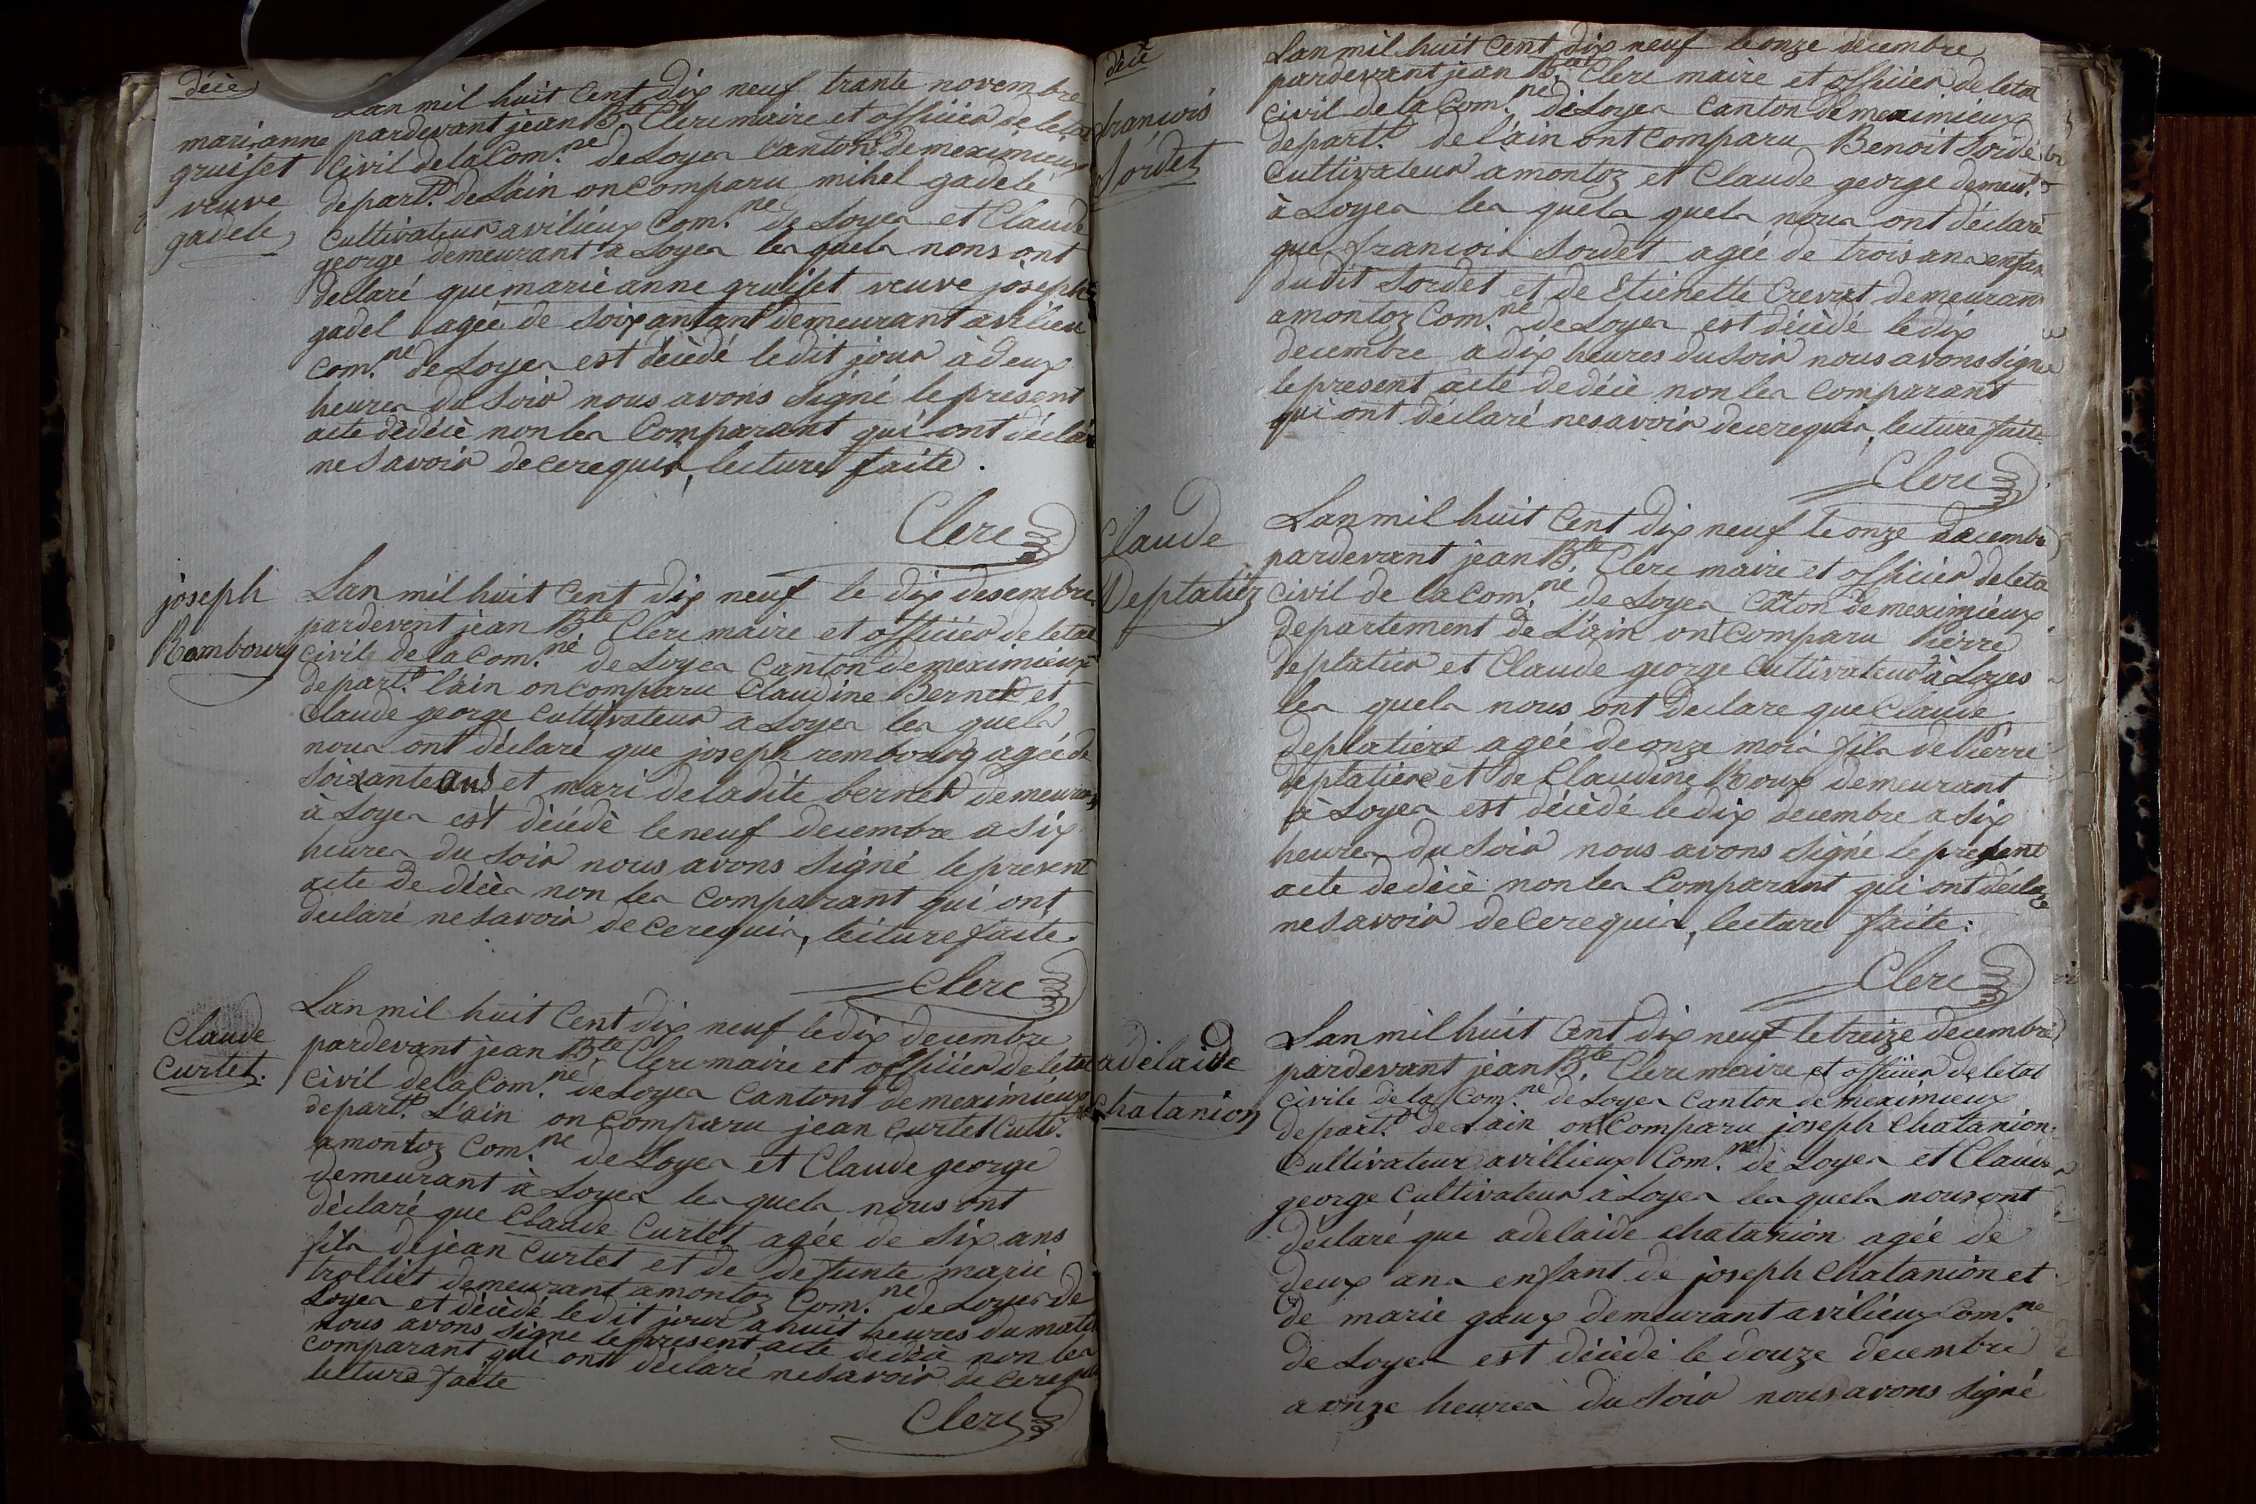 décès
mari,anne
gruiset
veuve
gadele
Lan mil huit Cent dix neuf trante novembre
pardevant jean Bte Clerc maire et officier de letat
Civil de la Com.ne de Loyes Canton de meximieux
depart.t de Lain on Comparu mihel gadele
Cultivateur a vilieux Com.ne de Loyes et Claude
george demeurant a Loyes les quels nons ont
declaré que marie anne gruiset veuve joseph
gadel agée de soixantant demeurant a vilieu
Com.ne de Loyes est décèdé ledit jour à deux
heures du Soir nous avons Signé le present
acte dedécè non les Comparant qui ont déclaré
ne Savoir de ce requis, lecture faite.
Clerc
joseph
Rembourg
Lan mil huit Cent dix neuf le dix desembre
pardevent jean Bte Clerc maire et officier de letat
Civile de la Com.ne de Loyes Canton de meximieux
depart.t lain on comparu Claudine Bernet et
Claude george Cultivateur a Loyes les quels
nous ont déclaré que joseph rembourg agée de
Soixante ans et mari de la dite bernet demeurant
à Loyes est décédé le neuf decembre a Six
heures du Soir nous avons Signé le present
acte de décès non les Comparant qui ont
déclaré ne Savoir de ce requis, lecture faite.
Clerc
Claude
Curtet.
Lan mil huit Cent dix neuf le dix decembre
pardevant jean Bte Clerc maire et officier de letat
Civil de la Com.ne de Loyes Cantont de meximieux
depart.t Lain on Comparu jean Curtet Cultr.
a montoz Com.ne de Loyes et Claude george
demeurant à Loyes les quels nous ont
déclaré que Claude Curtet agée de Six ans
fils de jean Curtet et de defunte marie
trolliet demeurant a montoz Com.ne de Loyes de
Loyes et décèdé le dit jour a huit heures du matin
nous avons Signe le present acte dedécè non les
comparant qui ont déclaré ne Savoir de ce requis
lecture faite
Clerc
décè
francois
Sordet
Lan mil huit Cent dix neuf le onze decembre
pardevant jean Bte Clerc maire et officier de letat
Civil de la Com.ne de Loyes Canton de meximieux
depart.t de lain ont Comparu Benoit Sordé
Cultivateur a montoz et Claude george demeut.
à Loyes les quels quels nous ont déclaré
que francois Sordet agée de trois ans enfan
du dit Sordet et de Etienette Crevat demeuran
a montoz Com.ne de Loyes est décèdé le dix
decembre a dix heures du Soir nous avons signe
le present acte de décè non les Comparant
qui ont déclaré ne savoir de ce requis, lecture faite
Clerc
Claude
Deplatier
Lan mil huit Cent dix neuf le onze decembre
pardevant jean Bte Clerc maire et officier de leta
Civil de la Com.ne de Loyes Caton de meximieux
departement de L'ain ont Comparu Pierre
deplatier et Claude george Cultivateur à Loyes
les quels nous ont declare que Claude
deplatiere agée de onze mois fils de Pierre
deplatiere et de Claudine Roux demeurant
à Loyes est décèdé le dix decembre a Six
heures du Soir nous avons Signé le present
acte dedécè non les Comparant qui ont déclaré
ne Savoir de Ce requis, lecture faite:
Clerc
adelaide
Chatanion
Lan mil huit Cent dix neuf le treize decembre
pardevant jean Bte Clerc maire et officier de letat
Civile de la Com.ne de Loyes Canton de meximieux
depart.t de Lain on Comparu joseph Chatanion
Cultivateur a villieux Com.ne de Loyes et Claude
george Cultivateur à Loyes les quels nous ont
déclaré que adelaide chatanion agée de
deux ans enfant de joseph Chatanion et
de marie gaux demeurant a vilieux Com.ne
de Loyes est décèdé le douze decembre
a onze heures du Soir nous avons Signé